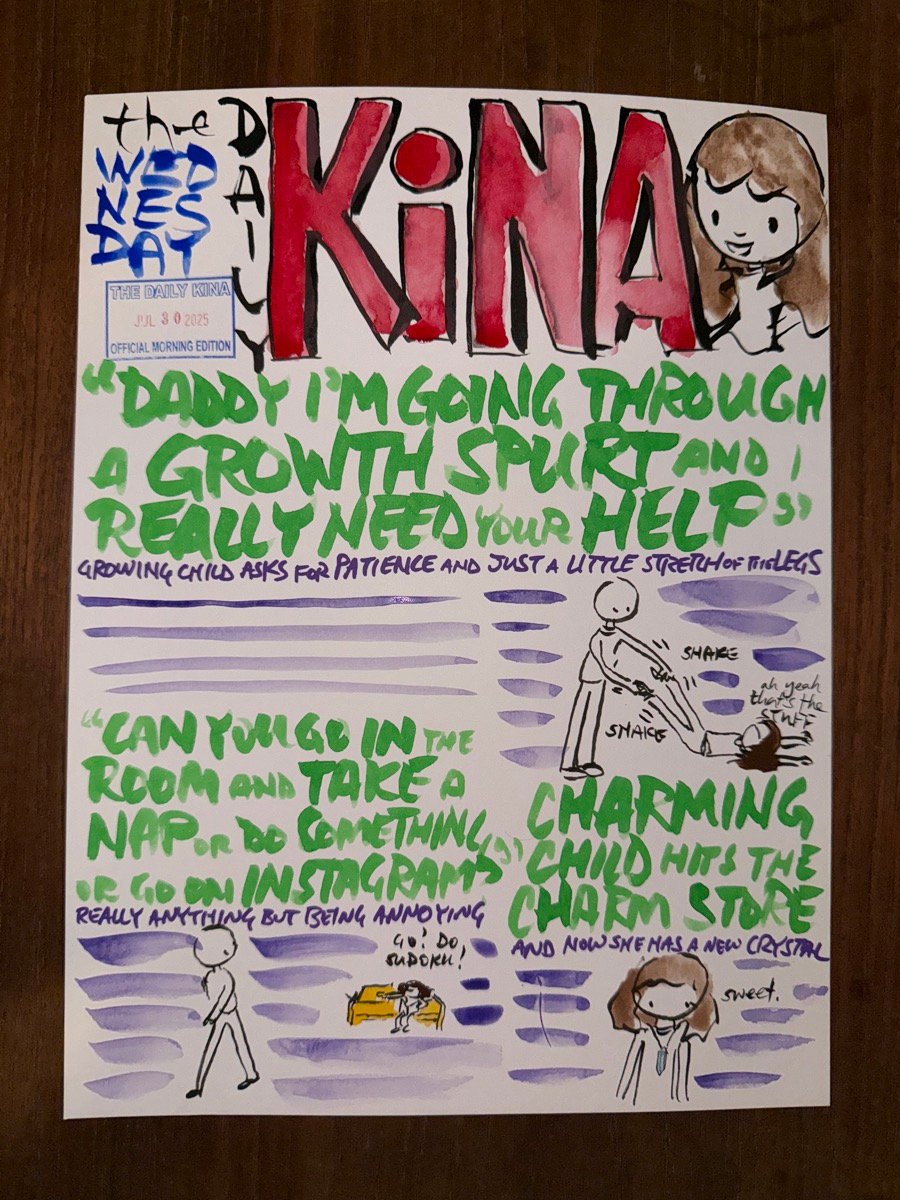 the
DAILY
KiNA
WED
NES
DAY
THE DAILY KINA
JUL 30 2025
OFFICIAL MORNING EDITION
"DADDY I'M GOING THROUGH
A GROWTH SPURT AND I
REALLY NEED YOUR HELP"
GROWING CHILD ASKS FOR PATIENCE AND JUST A LITTLE STRETCH OF THE LEGS
SHAKE
SHAKE
ah yeah
that's the
STUFF
"CAN YOU GO IN THE
ROOM AND TAKE A
NAP OR DO SOMETHING,
OR GO ON INSTAGRAM?"
REALLY ANYTHING BUT BEING ANNOYING
GO! DO
SUDOKU!
CHARMING
CHILD HITS THE
CHARM STORE
AND NOW SHE HAS A NEW CRYSTAL
SWEET.